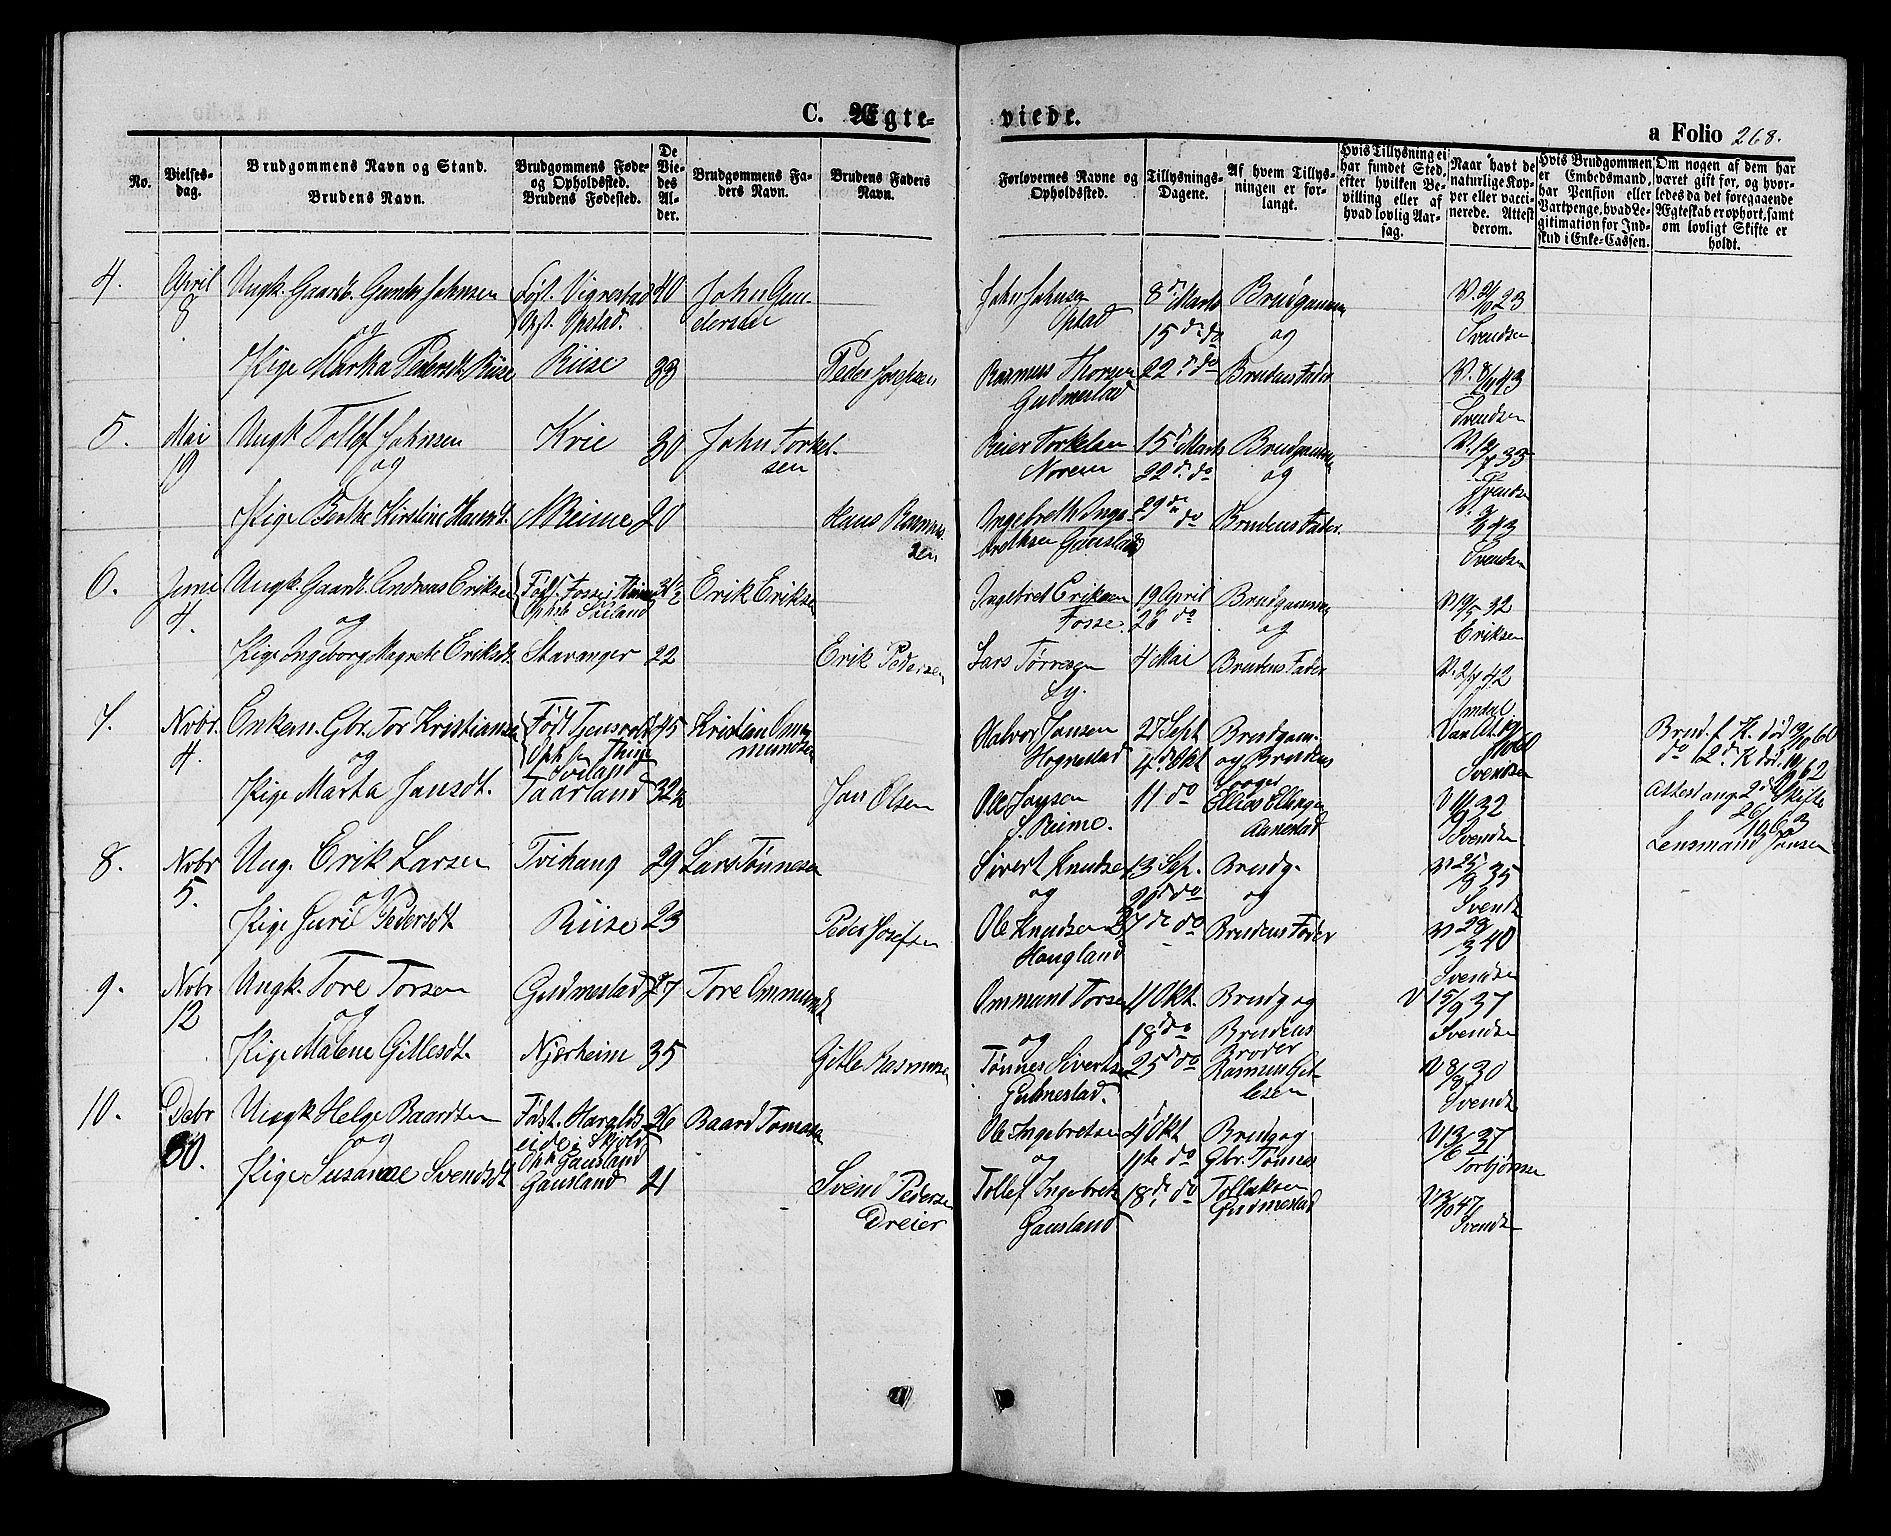 C. Ægte-
viede.
a Folio 268.
No.
Vielses-
dag.
Brudgommens Navn og Stand.
Brudens Navn.
Brudgommens Føde-
og Opholdsted.
Brudens Fødested.
De
Vie-
des
Al-
der.
Brudgommens Fa-
ders Navn.
Brudens Faders
Navn.
Forlovernes Navne og
Opholdsted.
Tillysnings-
Dagene.
Af hvem Tillys-
ningen er for-
langt.
Hvis Tillysning ei
har fundet Sted,
efter hvilken Be-
villing eller af
hvad lovlig Aar-
sag.
Naar havt de
naturlige Kop-
per eller vacci-
nerede. Attest
derom.
Hvis Brudgommen
er Embedsmand,
har Pension eller
Vartpenge, hvad Le-
gitimation for Ind-
skud i Enke-Cassen.
Om nogen af dem har
været gift før, og hvor-
ledes da det foregaaende
Ægteskab er ophørt, samt
om lovligt Skifte er
holdt.
4.
April
8
Ungk. Gaardb. Gunder Johnsen
og
Pige Martha Pedersdt. Riise
Føst. Vigrestad
Opst. Opstad.
Riise
40
33
John Gun
dersen
Peder Josefsen
John Johnsen
Opstad
Rasmus Thorsen
Gudmestad
8de Marts
15de do
22de do
Brudgommen
og
Brudens Fader
23
Svendsen
43
Svendsen
5.
Mai
19
Ungk. Tollef Johnsen
og
Pige Berthe Kirstine Hansdt.
Krie
N Reime
30
20
John Torkel-
sen
Hans Rasmus-
sen
Reier Torkelsen
Norem
Ingebreth Inge-
brethsen Gausland
15de Marts
22de do
29de do
Brudgommen
og
Brudens Fader.
V. 12/7 33
Svendsen
43
Svendsen
6.
Juni
4.
Ungk. Gaardb. Andreas Eriksen
og
Pige Ingeborg Magrete Eriksdt.
Født. Fosse i Thime
Ophh Skiland
Stavanger
31½
22
Erik Eriksen
Erik Pedersen
Ingebret Eriksen
Fosse.
Lars Tørresen
Ly.
19 April
26 do
4 Mai
Brudgommen
og
Brudens Fader
V 19/5 32
Eriksen
V. 2/7 42
7.
Novbr.
4.
Enkem. Gbr. Tor Kristiansen
og
Pige Marta Jansdt.
Født Tjensvold
Taarland
45
32½
Kristian Om-
mundsen
Jan Olsen
Halvor Jansen
Hognestad
Ole Jansen
S. Reime.
27 Sept
4de Okt
11 do
Brudgom.
og Brudens
Ellias Ellingsen
Aanestad
Svendsen
V 11/9 32
Svendsen
Brud. f. K. død 19/10 60
do 2de K. død 19/1 62
Attest ang. 2de Skifte
26/10 63
Lensmand Jansen
8.
Novbr
5.
Ung. Erik Larsen
og
Pige Guri Pedersdt
Tvihaug
Riise
29
23
Lars Tønnesen
Peder Josefsen
Sivert Knudsen
og
Ole Knudsen
Haugland
13 Sep.
20de do
27de do
Brudg.
og
Brudens Fader
V 25/9 35
Svends
V 29/3 40
Svendsen
9.
Novbr
12
Ungk. Tore Torsen
og
Pige Malene Gitlesdt.
Gudmestad
Njærheim
27
35
Tore Ommundt
Gitle Rasmusen
Ommund Torsen
og
Tønnes Sivertsen
Gudmestad.
4 Okt.
18de do
25de do
Brudg og
Brudens
Broder
Rasmus Git-
lesen
V 15/9 37
Svendsen
V 8/9 30
Svends
10.
Debr
30.
Ungk Helge Baardsen
og
Pige Susanne Svendsdt
Født. Haralds-
eide i Skjold
Ophh Gausland
Gausland
26
21
Baard Tomasen
Svend Pedersen
Dreier
Ole Ingebretsen
og
Tollef Ingebrets
Gausland
4 Okt
11te do
18de do
Brudg og
Gbr. Tønnes
Tollaksen
Gudmestad
V 13/6 37
Torbjørnsen
47
Svendsen